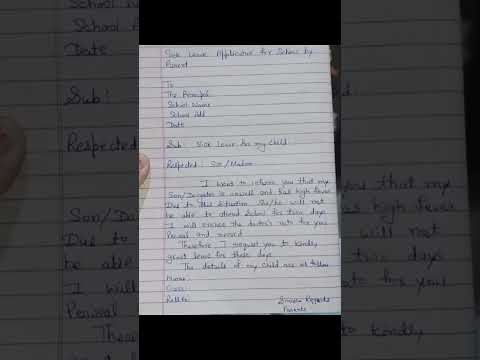 Sick Leave Application for School by
Parent
To
The Principal
School Name
School Add
Date
Sub: Sick leave for my child
Respected: Sir/Madam
I want to inform you that my
Son/Daughter is unwell and has high fever
Due to this situation She/he will not
be able to attend School for two days
I will enclose the doctor's note for your
Perusal and record
Therefore I request you to kindly
grant leave for these days
The details of my child are as follow
Name:
Class:
Roll No
Sincere Regards
Parents